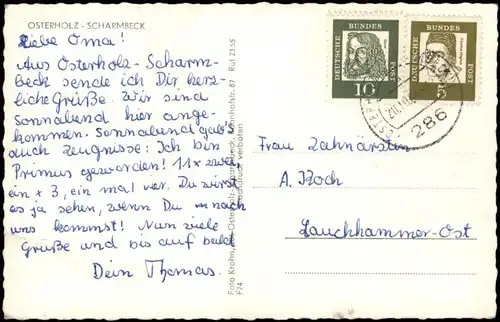 OSTERHOLZ - SCHARMBECK
Liebe Oma!
Aus Osterholz-Scharm-
beck sende ich Dir herz-
liche Grüße. Wir sind
Sonnabend hier ange-
kommen. Sonnabend gab's
auch Zeugnisse: Ich bin
Primus geworden! 11x zwei,
ein + 3, ein mal vier. Du wirst
es ja sehen, wenn Du nach
uns kommst! Nun viele
Grüße und bis auf bald
Dein Thomas.
Foto Krohn, Osterholz-Scharmbeck, Bahnhofstr. 87 Ruf 2355
Nachdruck verboten
F74
DEUTSCHE BUNDES POST
10
DEUTSCHE BUNDES POST
5
286
Frau Zahnärztin
A. Koch
Lauchhammer-Ost